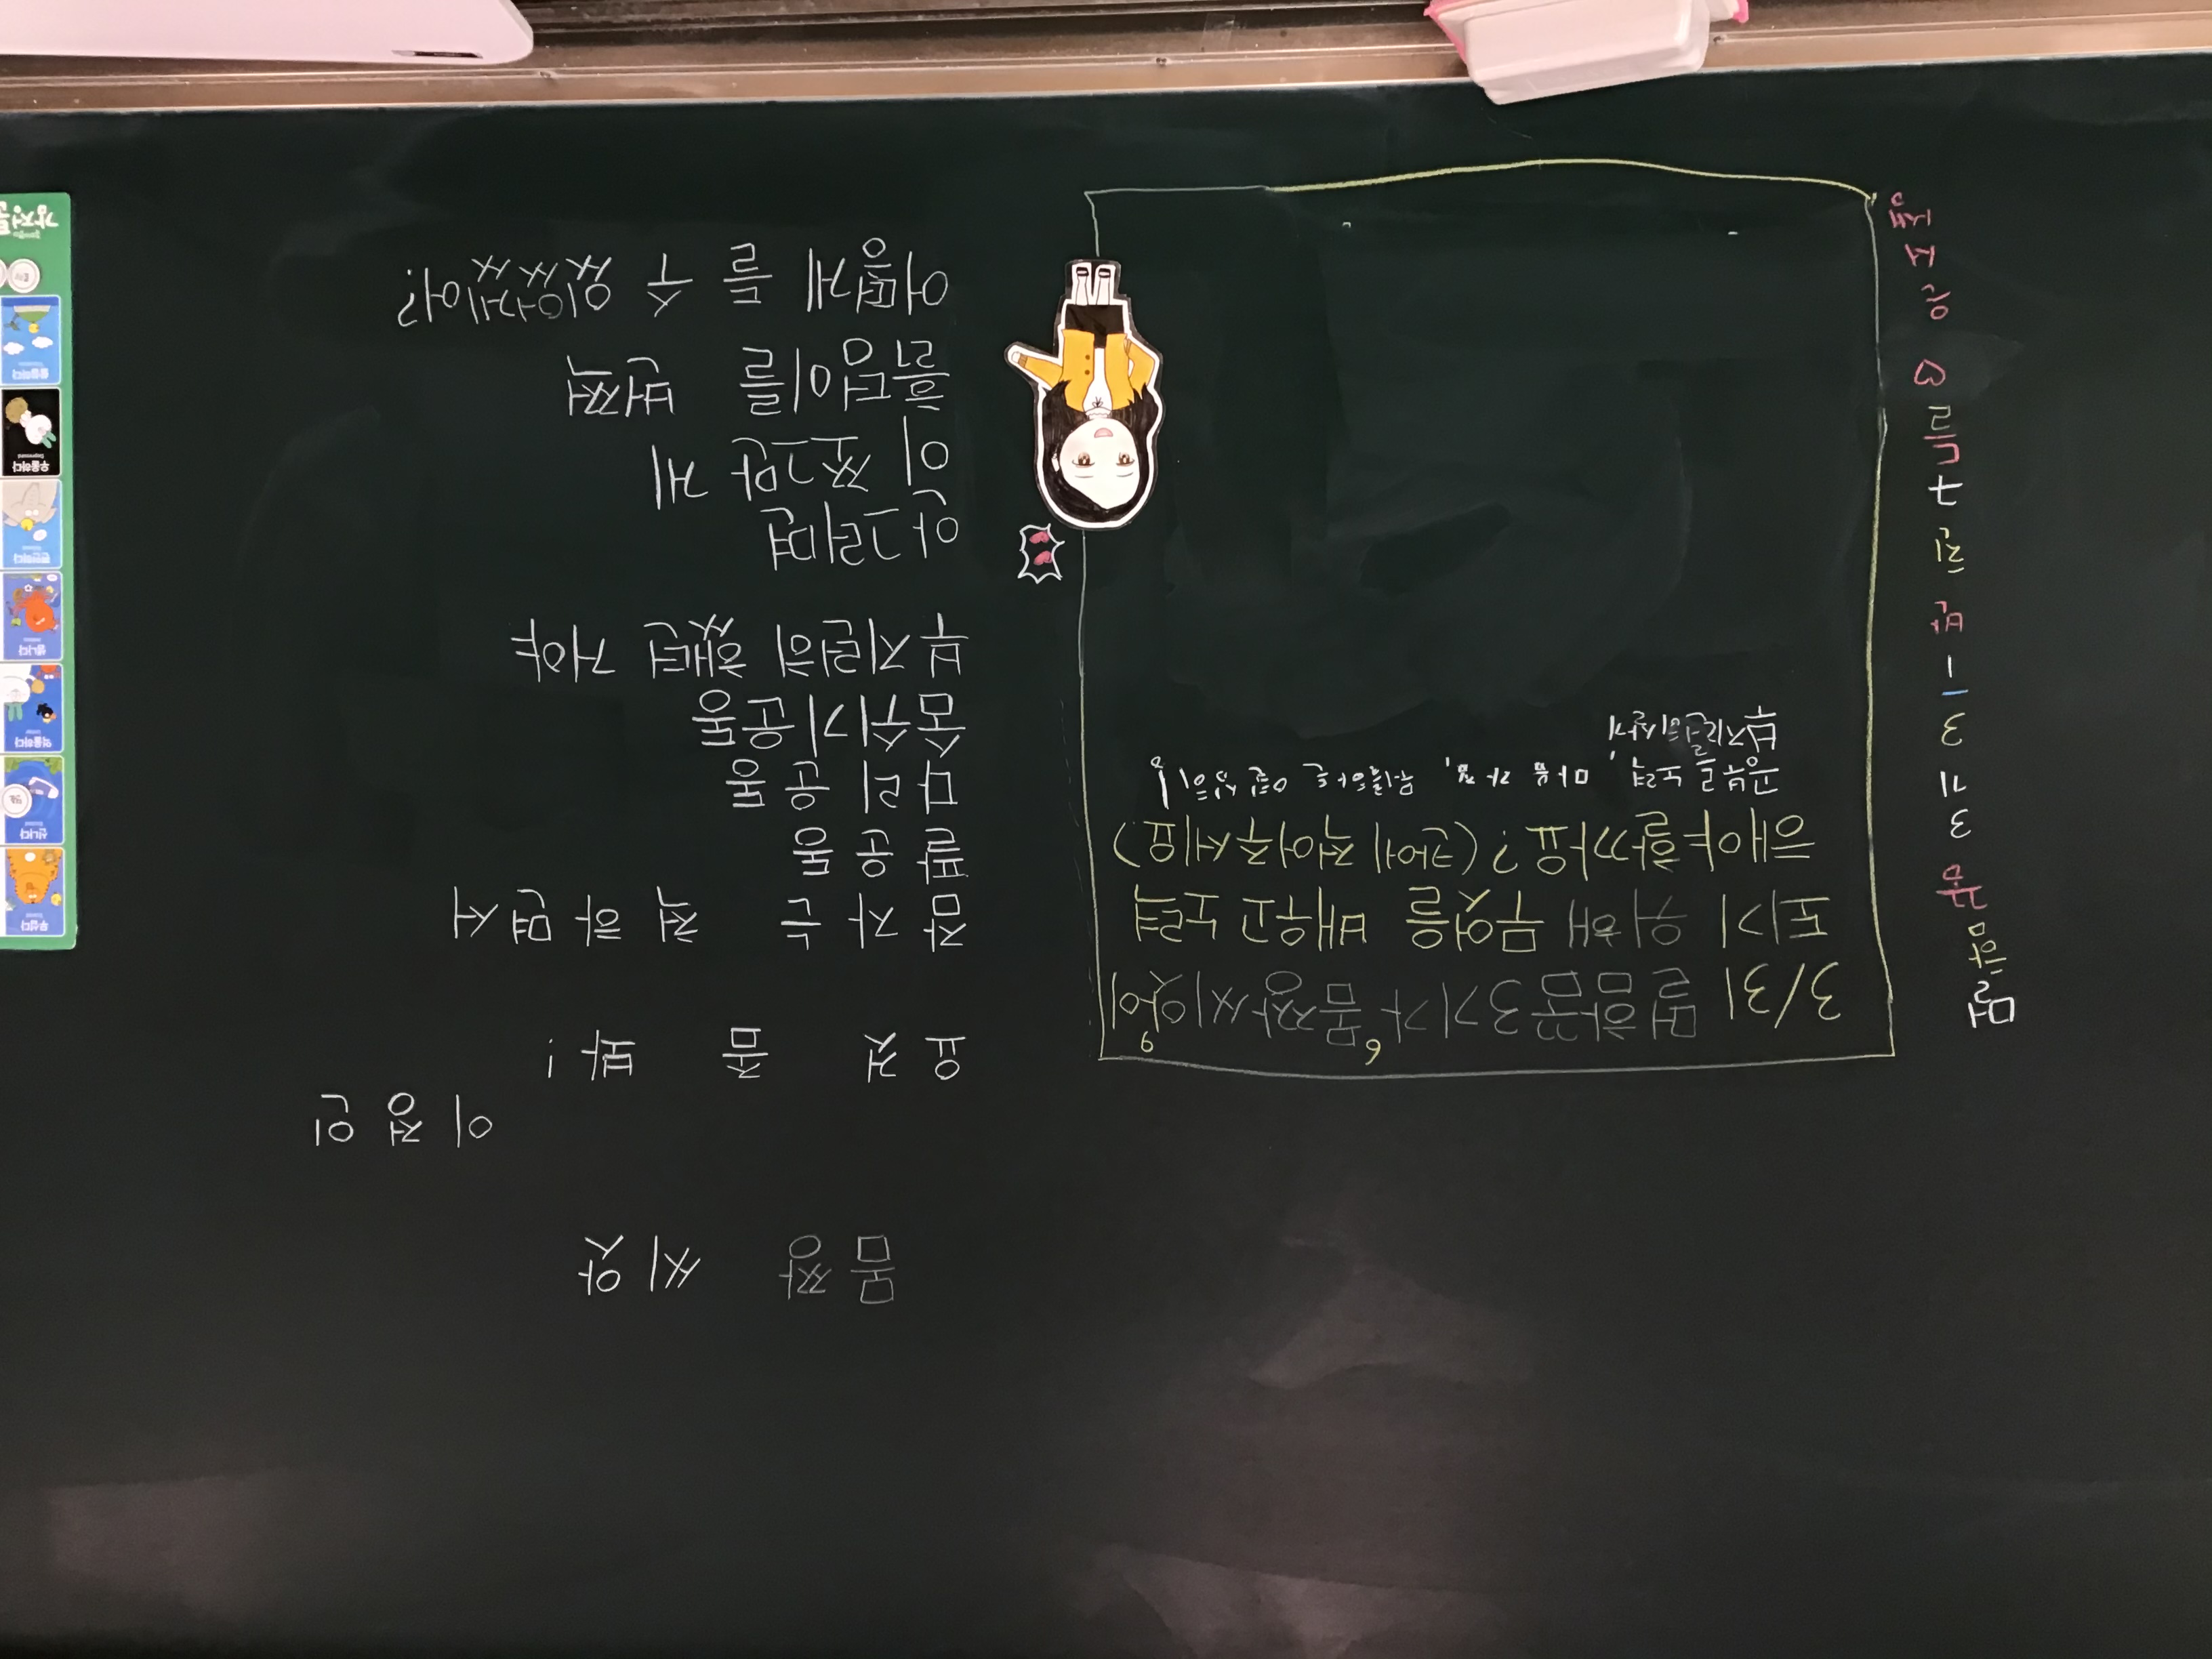 멀
함
꿈
3
기
3
-
1
반
친
구
들♡
은
서
쌤
3/31 멀함꿈3기가 몸짱씨앗이
6
9
되기 위해 무엇을 배우고 노력
해야할까요? (칸에 적어주세요)
공부를 노력, 마음 가짐, 뭐를하든 열심히!
부지런히살기
몸짱 씨앗
이정인
요것 좀 봐!
잠자는 척하면서
팔운동
다리운동
숨쉬기운동
부지런히 했던 거야
안그러면
이 쪼그만 게
흙덩이를 번쩍
어떻게 들 수 있었겠어?
무섭다
신나다
억울하다
샘나다
편안하다
우울하다
Depressed
쓸쓸하다
감정툰